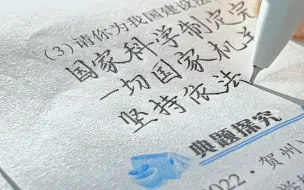 (3)请你为我国建设法
国家科学制定完
一切国家机关
坚持依法
典题探究
2022·贺州